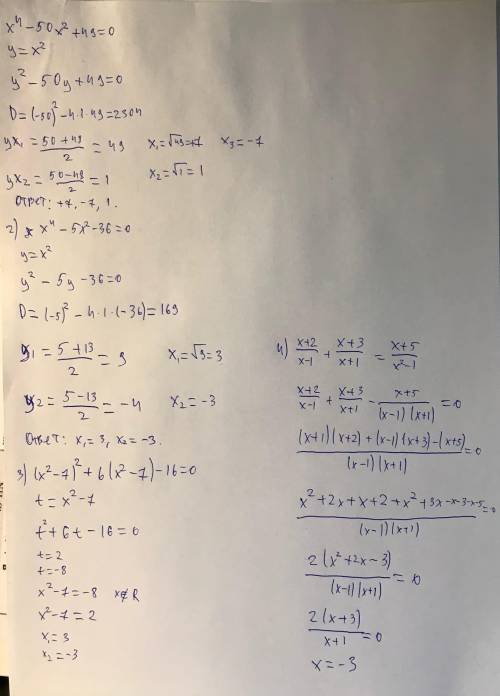 x⁴ − 50x² + 49 = 0
y = x²
y² − 50y + 49 = 0
D = (−50)² − 4·1·49 = 2304
yx₁ = (50 + 49)/2 = 49 x₁ = √49 = +7 x₃ = −7
yx₂ = (50 − 48)/2 = 1 x₂ = √1 = 1
Ответ: +7, −7, 1.
2) x⁴ − 5x² − 36 = 0
y = x²
y² − 5y − 36 = 0
D = (−5)² − 4·1·(−36) = 169
y₁ = (5 + 13)/2 = 9 x₁ = √9 = 3
y₂ = (5 − 13)/2 = −4 x₂ = −3
Ответ: x₁ = 3, x₂ = −3.
3) (x² − 7)² + 6(x² − 7) − 16 = 0
t = x² − 7
t² + 6t − 16 = 0
t = 2
t = −8
x² − 7 = −8 x∉R
x² − 7 = 2
x₁ = 3
x₂ = −3
4) (x+2)/(x−1) + (x+3)/(x+1) = (x+5)/(x²−1)
(x+2)/(x−1) + (x+3)/(x+1) − (x+5)/((x−1)(x+1)) = 0
((x+1)(x+2) + (x−1)(x+3) − (x+5))/((x−1)(x+1))
(x² + 2x + x + 2 + x² + 3x − x − 3 − x − 5)/((x−1)(x+1)) = 0
2(x² + 2x − 3)/((x−1)(x+1)) = 0
2(x+3)/(x+1) = 0
x = −3